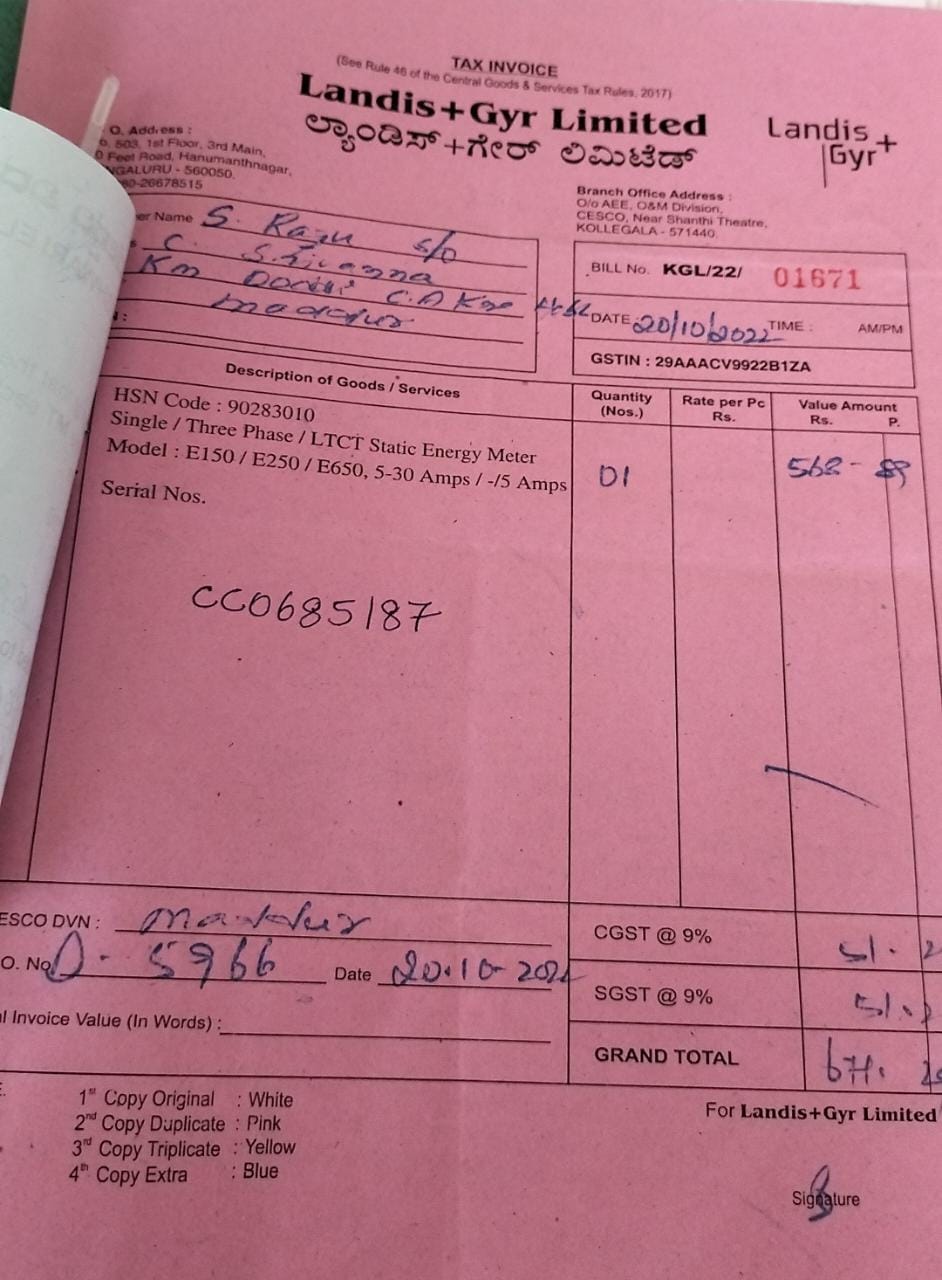 TAX INVOICE
(See Rule 46 of the Central Goods & Services Tax Rules, 2017)
Landis+Gyr Limited
ಲ್ಯಾಂಡಿಸ್+ಗೇರ್ ಲಿಮಿಟೆಡ್
Landis+
Gyr
O. Address :
503, 1st Floor, 3rd Main,
Feet Road, Hanumanthnagar,
NGALURU - 560050.
80-26678515
Branch Office Address :
O/o AEE, O&M Division,
CESCO, Near Shanthi Theatre,
KOLLEGALA - 571440.
er Name S. Raju S/o
C.
Km
Maddur
BILL No. KGL/22/ 01671
DATE : 20/10/2022 TIME : AM/PM
GSTIN : 29AAACV9922B1ZA
Description of Goods / Services
Quantity (Nos.)
Rate per Pc Rs.
Value Amount Rs. P.
HSN Code : 90283010
Single / Three Phase / LTCT Static Energy Meter
Model : E150 / E250 / E650, 5-30 Amps / -/5 Amps
01
568 - 89
Serial Nos.
CC0685187
ESCO DVN : Maddur
O. No D - 5966 Date 20-10-2022
l Invoice Value (In Words) :
CGST @ 9% 51. 2
SGST @ 9% 51.
GRAND TOTAL 671.
1st Copy Original : White
2nd Copy Duplicate : Pink
3rd Copy Triplicate : Yellow
4th Copy Extra : Blue
For Landis+Gyr Limited
Signature